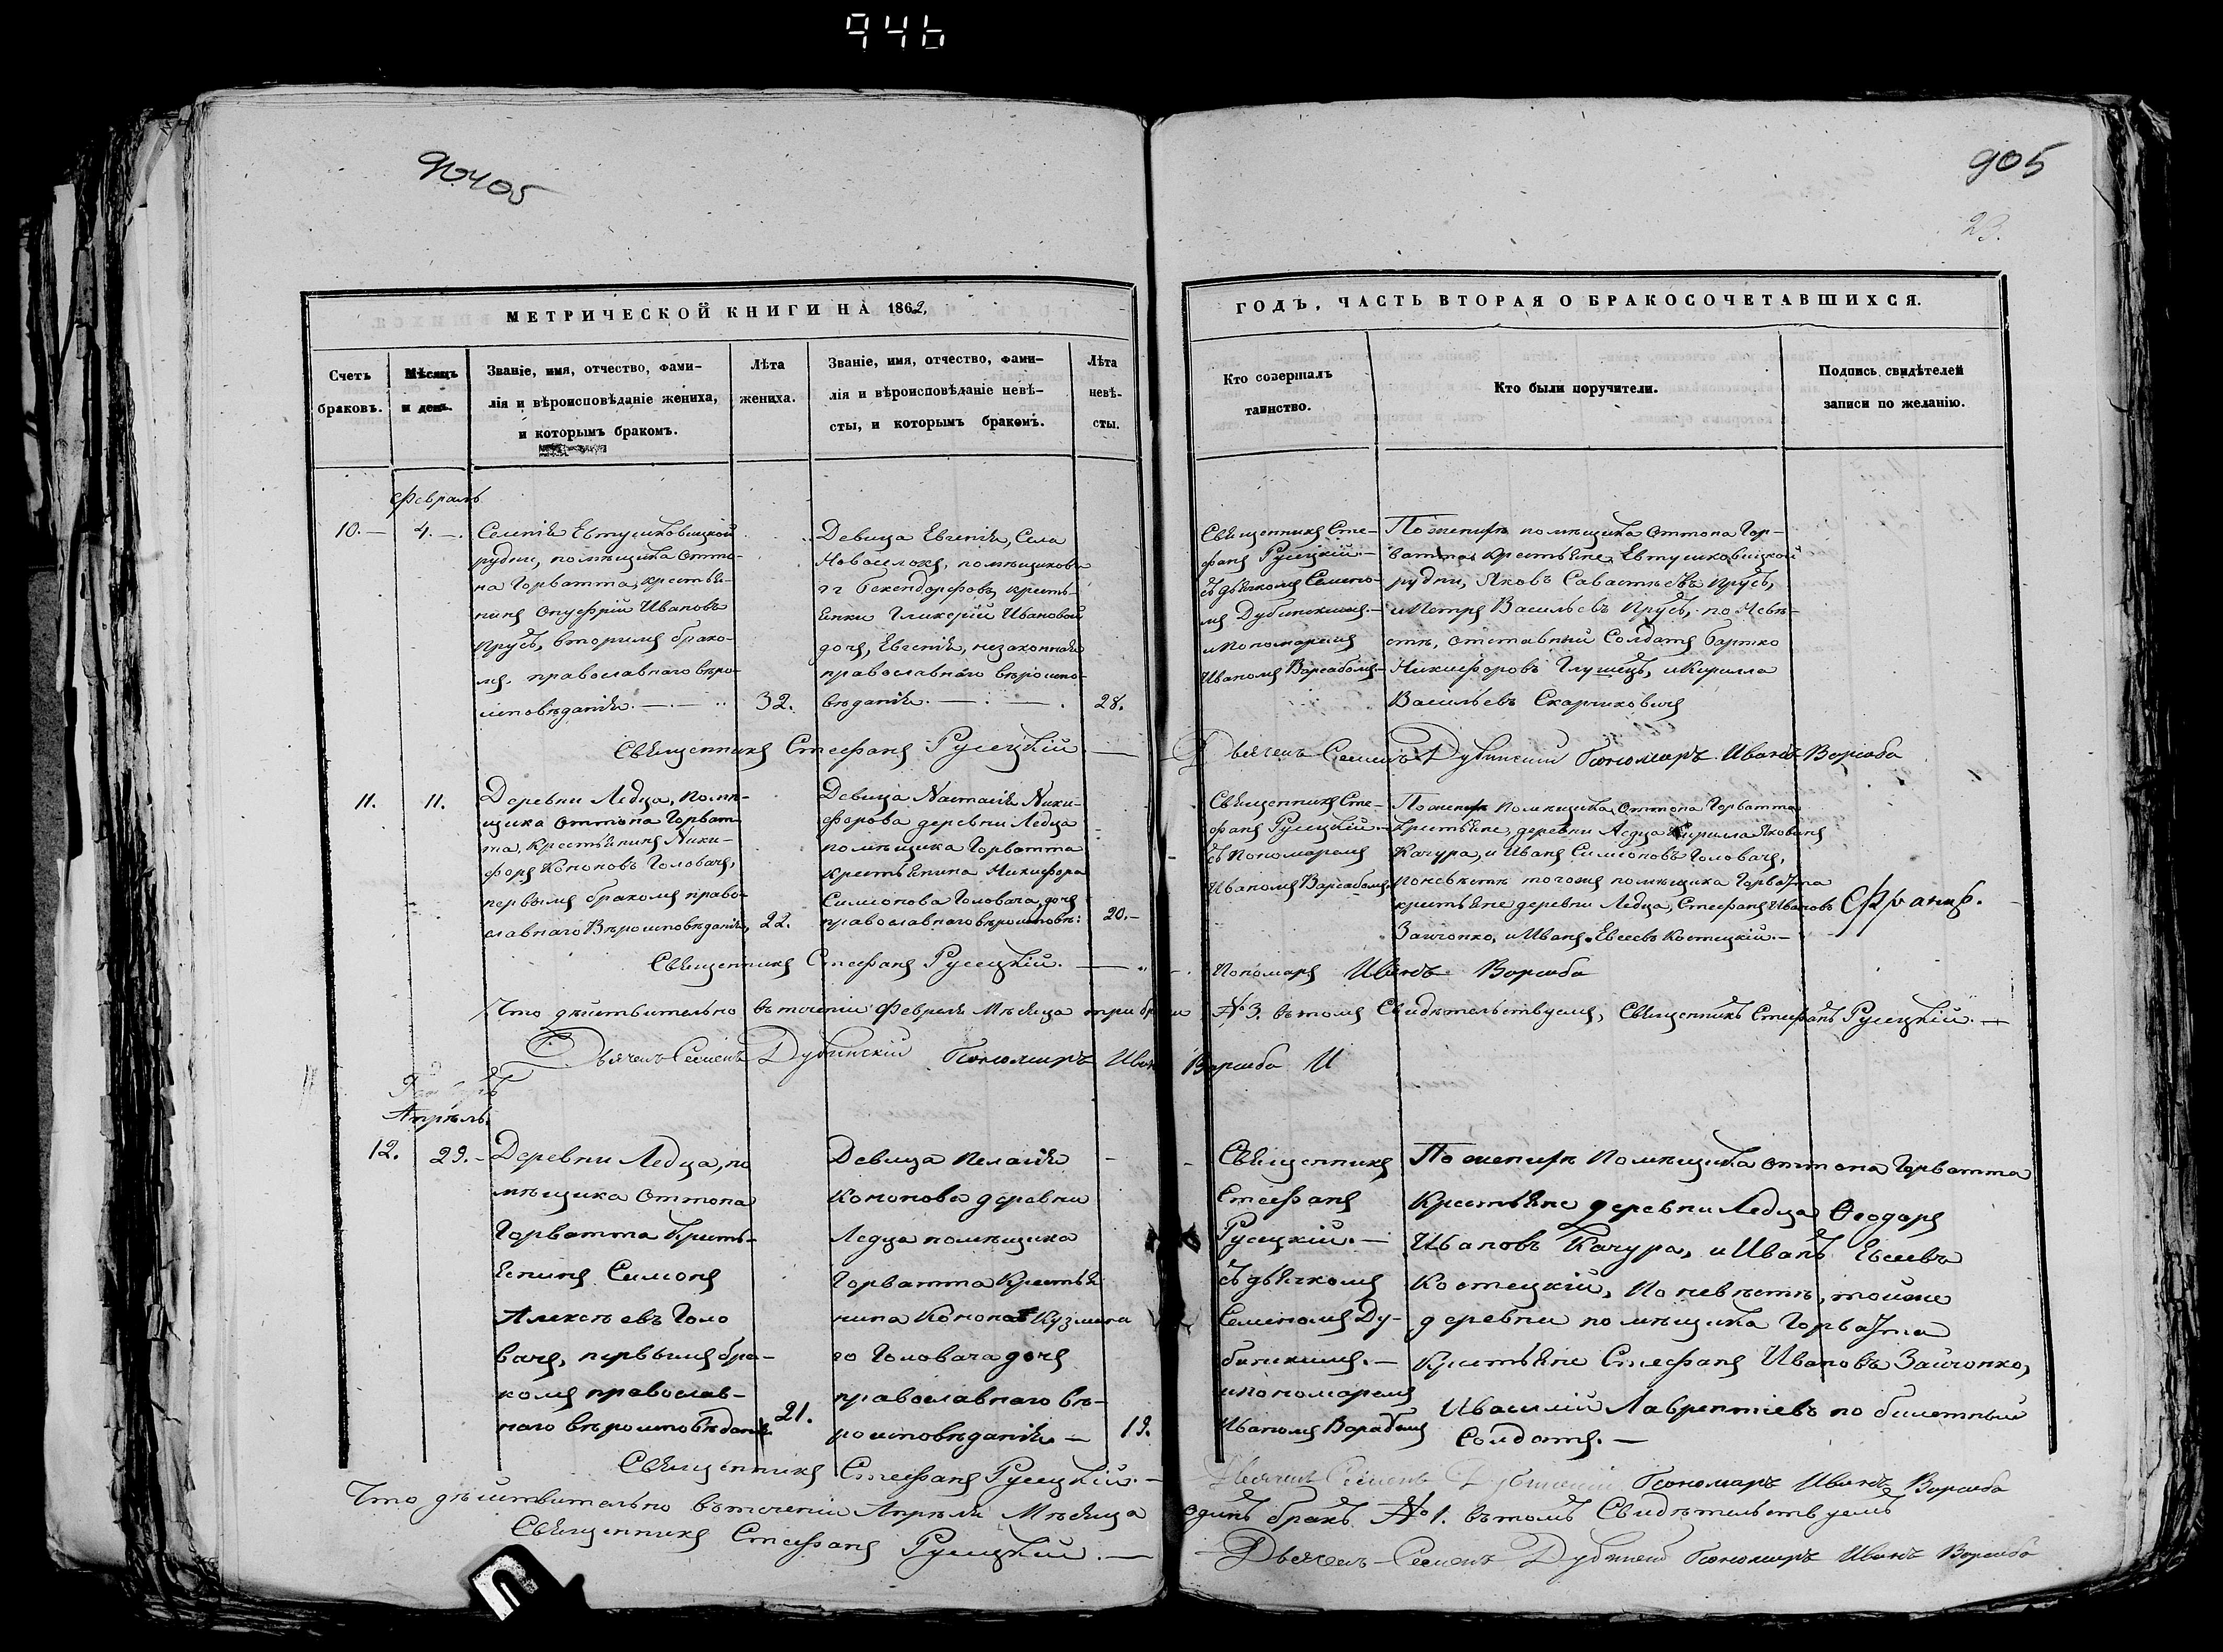 946
905
23.
МЕТРИЧЕСКОЙ КНИГИ НА 1862,
Счетъ браковъ.
Мѣсяцъ и день.
Званіе, имя, отчество, фами-
лія и вѣроисповѣданіе жениха,
и которымъ бракомъ.
Лѣта жениха.
Званіе, имя, отчество, фами-
лія и вѣроисповѣданіе невѣ-
сты, и которымъ бракомъ.
Лѣта невѣ-
сты.
ГОДЪ, ЧАСТЬ ВТОРАЯ О БРАКОСОЧЕТАВШИХСЯ.
Кто совершалъ
таинство.
Кто были поручители.
Подпись свидѣтелей
записи по желанію.
Февраль
10.—
4.—
Селенія Евтушковицкой
рудни, помѣщика Отто-
на Горватта, крестья-
нинъ Онуфрій Ивановъ
Прусъ, вторымъ брако-
мъ. православнаго вѣро-
исповѣданія.—
32.
Девица Евгенія, Села
Новоселокъ, помѣщиковъ
гг Бекендорфовъ, кресть-
янки Гликерій Ивановой
дочь, Евгенія, незаконная
православнаго вѣроиспо-
вѣданія.—
28.
Священникъ Сте-
фанъ Русецкій.—
съ дьячкомъ Семено-
мъ Дубинскимъ.—
и пономаремъ
Иваномъ Ворсабомъ—
По женихѣ помѣщика Оттона Гор-
ватта, крестьяне, Евтушковицкой
рудни, Яковъ Савастьевъ Прусъ,
и Петръ Васильевъ Прусъ, по невѣ-
стѣ, отставный Солдатъ Бартко
Никифоровъ Глушецъ, и Кирилла
Васильевъ Скарчиковичъ
Священникъ Стефанъ Русецкій.—
Дьячекъ Семенъ Дубинскій Пономаръ Иванъ Ворсаба
11.
11.
Деревни Ледца, помѣ-
щика Оттона Горват-
та, Крестьянинъ Ники-
форъ Кононовъ Головачъ,
первымъ бракомъ право-
славнаго Вѣроисповѣданія,
22.
Девица Настасія Ники-
форова деревни Ледца
помѣщика Горватта
крестьянина Никифора
Симонова Головача, дочь
православнаго вѣроисповѣ:
20.—
Священникъ Сте-
фанъ Русецкій—
съ Пономаремъ
Иваномъ Ворсабомъ.
По женихѣ Помѣщика Оттона Горватта
крестьяне, деревни Ледца Кирилла Якованъ
Качура, и Иванъ Симоновъ Головачъ,
по невѣстѣ тогожъ помѣщика Горватта
крестьяне деревни Ледца, Стефанъ Ивановъ
Заичонко, и Иванъ Евсеевъ Костецкій.—
Священникъ Стефанъ Русецкій.—
Пономаръ Иванъ Ворсаба
Что дѣйствительно въ теченіи Февраля Мѣсяца три брака № 3. въ томъ Свидѣтельствуемъ, Священникъ Стефанъ Русецкій.—
Дьячекъ Семенъ Дубинскій Пономаръ Иванъ Ворсаба И
Апрѣль.
12.
29.—
Деревни Ледца, по
мѣщика Оттона
Горватта Кресть-
янинъ Симонъ
Алексѣевъ Голо
вачъ, первымъ бра-
комъ православ-
наго вѣроисповѣданія
21.
Девица Пелагія
Кононова деревни
Ледца помѣщика
Горватта Крестья
нина Конона Кузмина
го Головача дочь
православнаго вѣ-
роисповѣданія.—
19.
Священникъ
Стефанъ
Русецкій.—
съ дьячкомъ
Семеномъ Ду-
бинскимъ.—
и пономаремъ
Иваномъ Ворсабомъ
По женихѣ Помѣщика Оттона Горватта
Крестьяне деревни Ледца Ѳеодоръ
Ивановъ Качура, и Иванъ Евсеевъ
Костецкій, По невѣстѣ, тойже
деревни помѣщика Горватта
Крестьяне Стефанъ Ивановъ Заичонко,
И василій Лаврентіевъ по билетный
Солдатъ.—
Священникъ Стефанъ Русецкій.—
Дьячекъ Семенъ Дубинскій Пономаръ Иванъ Ворсаба
Что дѣйствительно въ теченіи Апрѣля Мѣсяца одинъ бракъ № 1. въ томъ Свидѣтельствуемъ
Священникъ Стефанъ Русецкій.—
Дьячекъ Семенъ Дубинскій Пономаръ Иванъ Ворсаба